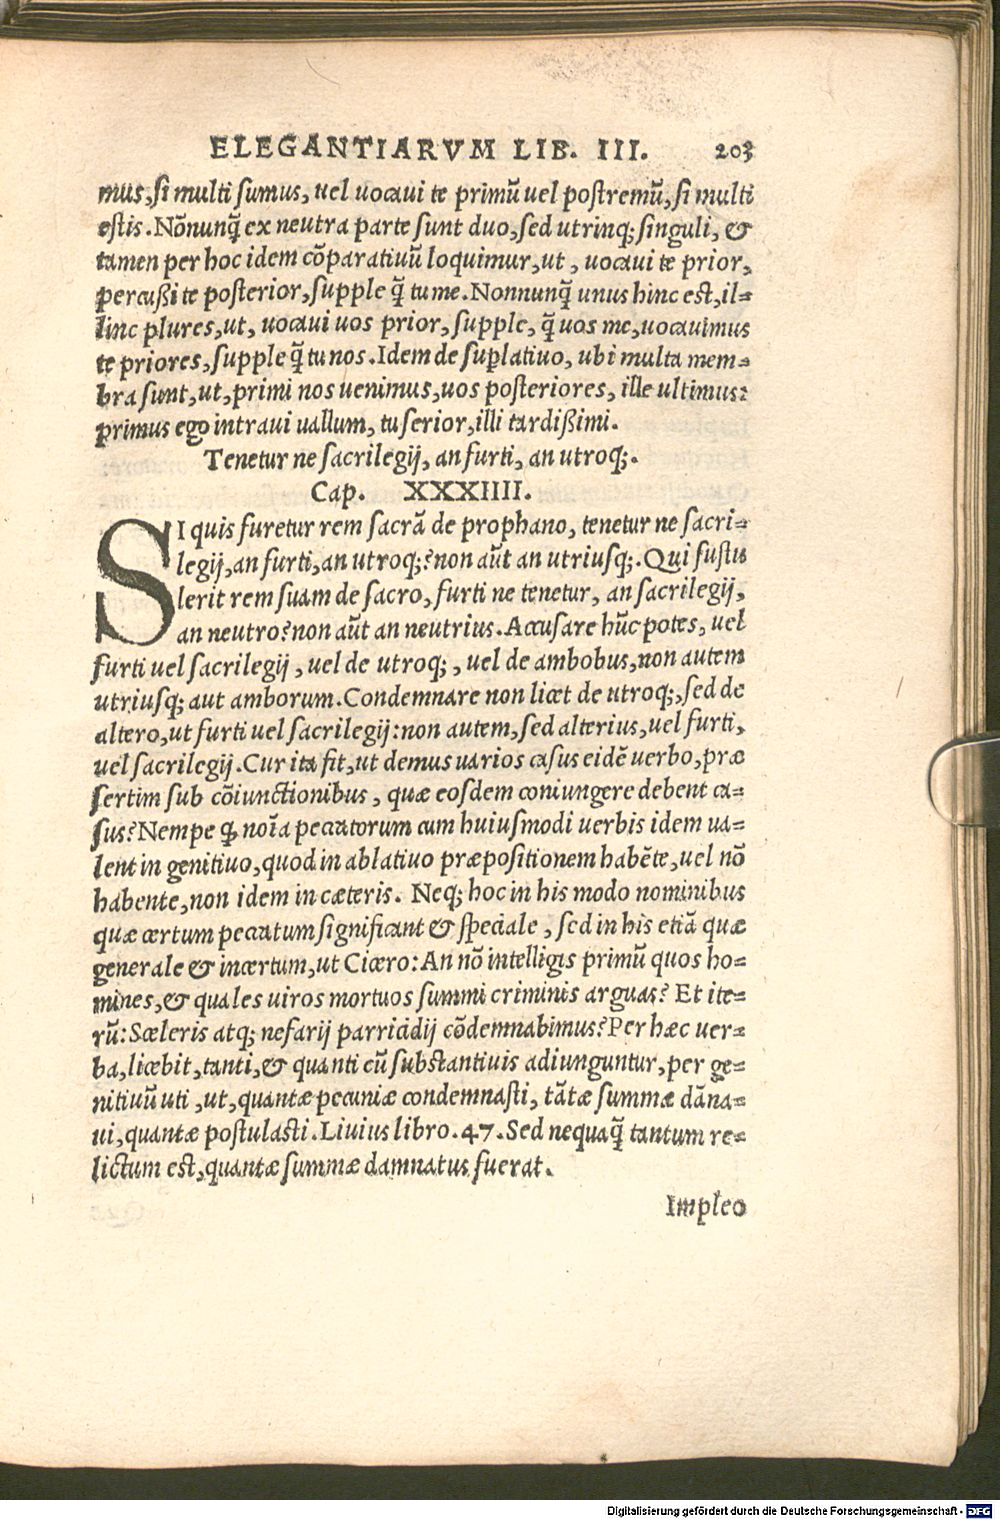 ELEGANTIARVM LIB. III. 203
mus, si multi sumus, uel uocaui te primũ uel postremũ, si multi
estis. Nõnunq̃ ex neutra parte sunt duo, sed utrinq; singuli, &
tamen per hoc idem cõparatiuũ loquimur, ut, uocaui te prior,
percußi te posterior, supple q̃ tu me. Nonnunq̃ unus hinc est, il=
linc plures, ut, uocaui uos prior, supple, q̃ uos me, uocauimus
te priores, supple q̃ tu nos. Idem de suplatiuo, ubi multa mem=
bra sunt, ut, primi nos uenimus, uos posteriores, ille ultimus:
primus ego intraui uallum, tu serior, illi tardißimi.
Tenetur ne sacrilegij, an furti, an utroq;.
Cap. XXXIIII.
SI quis furetur rem sacrã de prophano, tenetur ne sacri=
legij, an furti, an utroq;? non aũt an utriusq;. Qui sustu
lerit rem suam de sacro, furti ne tenetur, an sacrilegij,
an neutro? non aũt an neutrius. Accusare hũc potes, uel
furti uel sacrilegij, uel de utroq;, uel de ambobus, non autem
utriusq; aut amborum. Condemnare non licet de utroq;, sed de
altero, ut furti uel sacrilegij: non autem, sed alterius, uel furti,
uel sacrilegij. Cur ita fit, ut demus uarios casus eidẽ uerbo, præ
sertim sub cõiunctionibus, quæ eosdem coniungere debent ca=
sus? Nempe ꝙ noĩa peccatorum cum huiusmodi uerbis idem ua=
lent in genitiuo, quod in ablatiuo præpositionem habẽte, uel nõ
habente, non idem in cæteris. Neq; hoc in his modo nominibus
quæ certum peccatum significant & speciale, sed in his etiã quæ
generale & incertum, ut Cicero: An nõ intelligis primũ quos ho=
mines, & quales uiros mortuos summi criminis arguas? Et ite=
rũ: Sceleris atq; nefarij parricidij cõdemnabimus? Per hæc uer=
ba, licebit, tanti, & quanti cũ substantiuis adiunguntur, per ge=
nitiuũ uti, ut, quantæ pecuniæ condemnasti, tãtæ summæ dãna=
ui, quantæ postulasti. Liuius libro. 47. Sed nequaq̃ tantum re=
lictum est, quantæ summæ damnatus fuerat.
Impleo
Digitalisierung gefördert durch die Deutsche Forschungsgemeinschaft - DFG